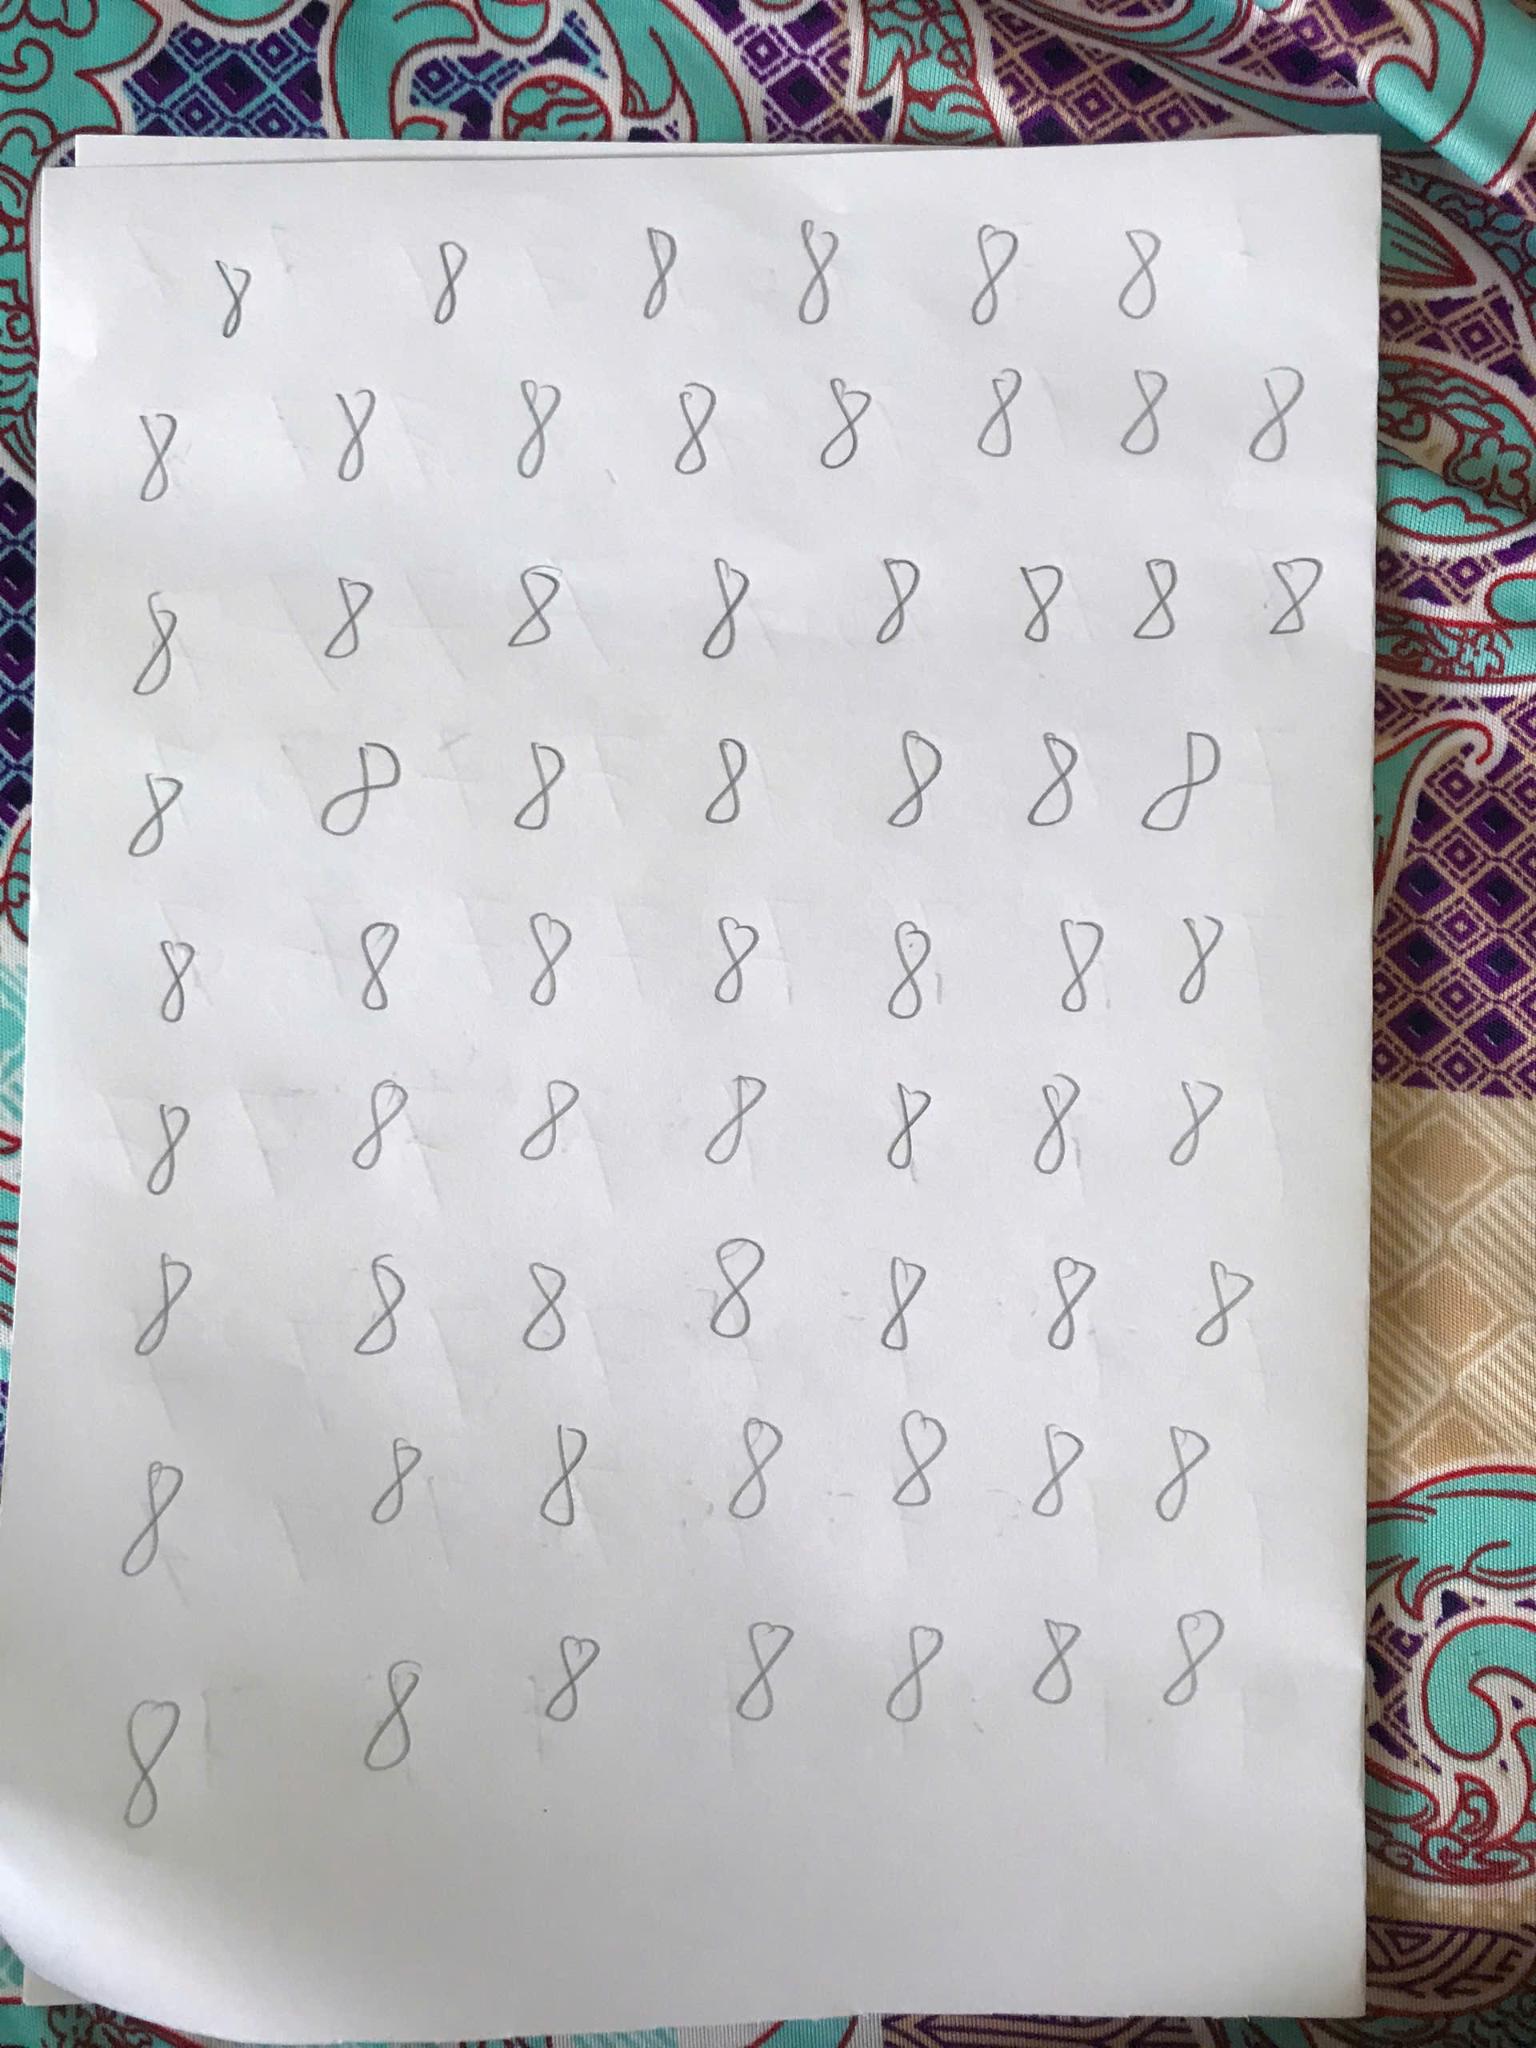 8 8 8 8 8 8
8 8 8 8 8 8 8 8
8 8 8 8 8 8 8 8
8 8 8 8 8 8 8
8 8 8 8 8 8 8
8 8 8 8 8 8 8
8 8 8 8 8 8 8
8 8 8 8 8 8 8
8 8 8 8 8 8 8